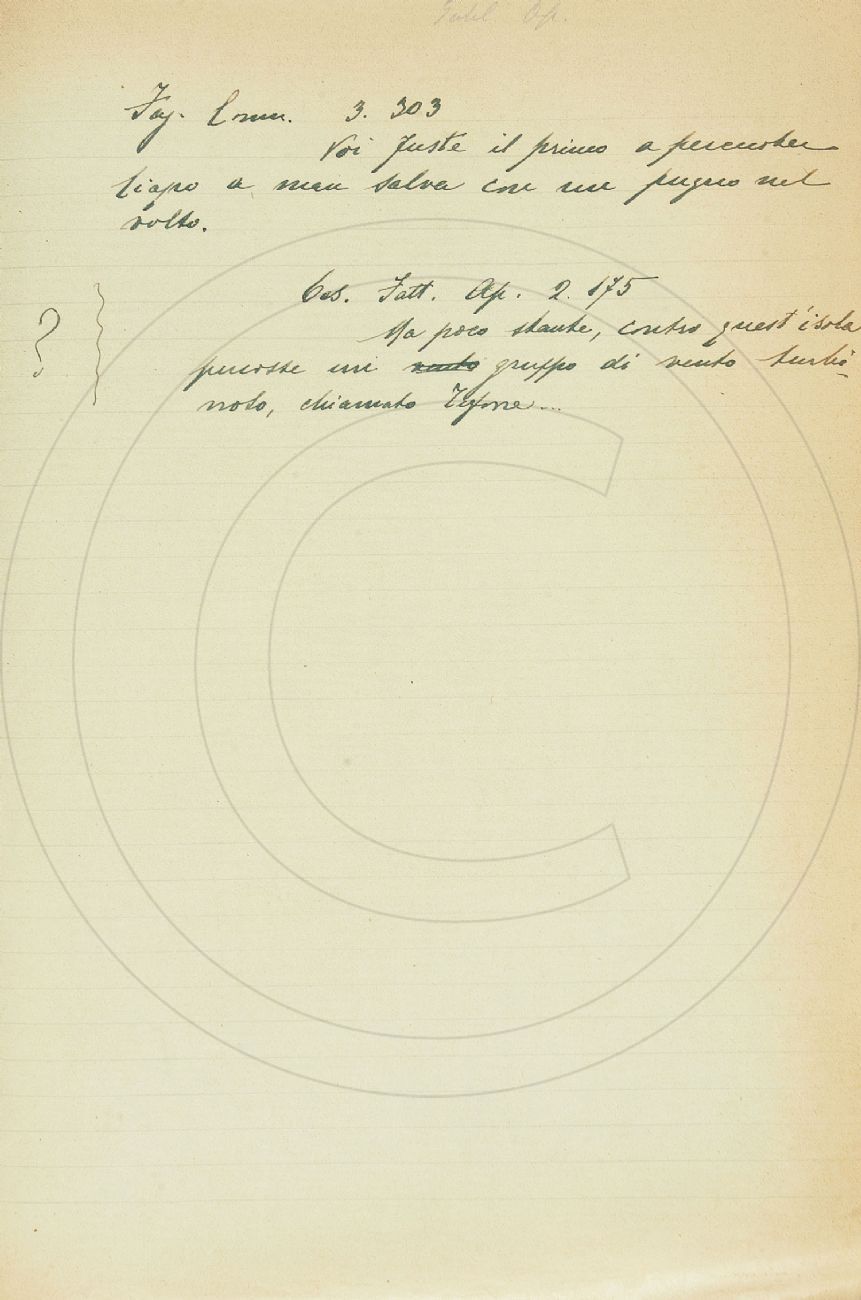 Fag. Comm. 3. 303
Voi fuste il primo a percuoter
Ciapo a man salva con un pugno nel
volto.
Ces. Fatt. Ap. 2. 175
Ma poco stante, contro quest'isola
?
percosse un vento gruppo di vento turbi-
noso, chiamato Tifone...